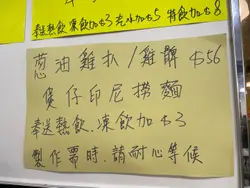 奉送熱飲 凍飲加$3 汽水加$5 特飲加$8
蔥油雞扒/雞髀 $56
煲仔印尼撈麵
奉送熱飲.凍飲加$3
製作需時.請耐心等候